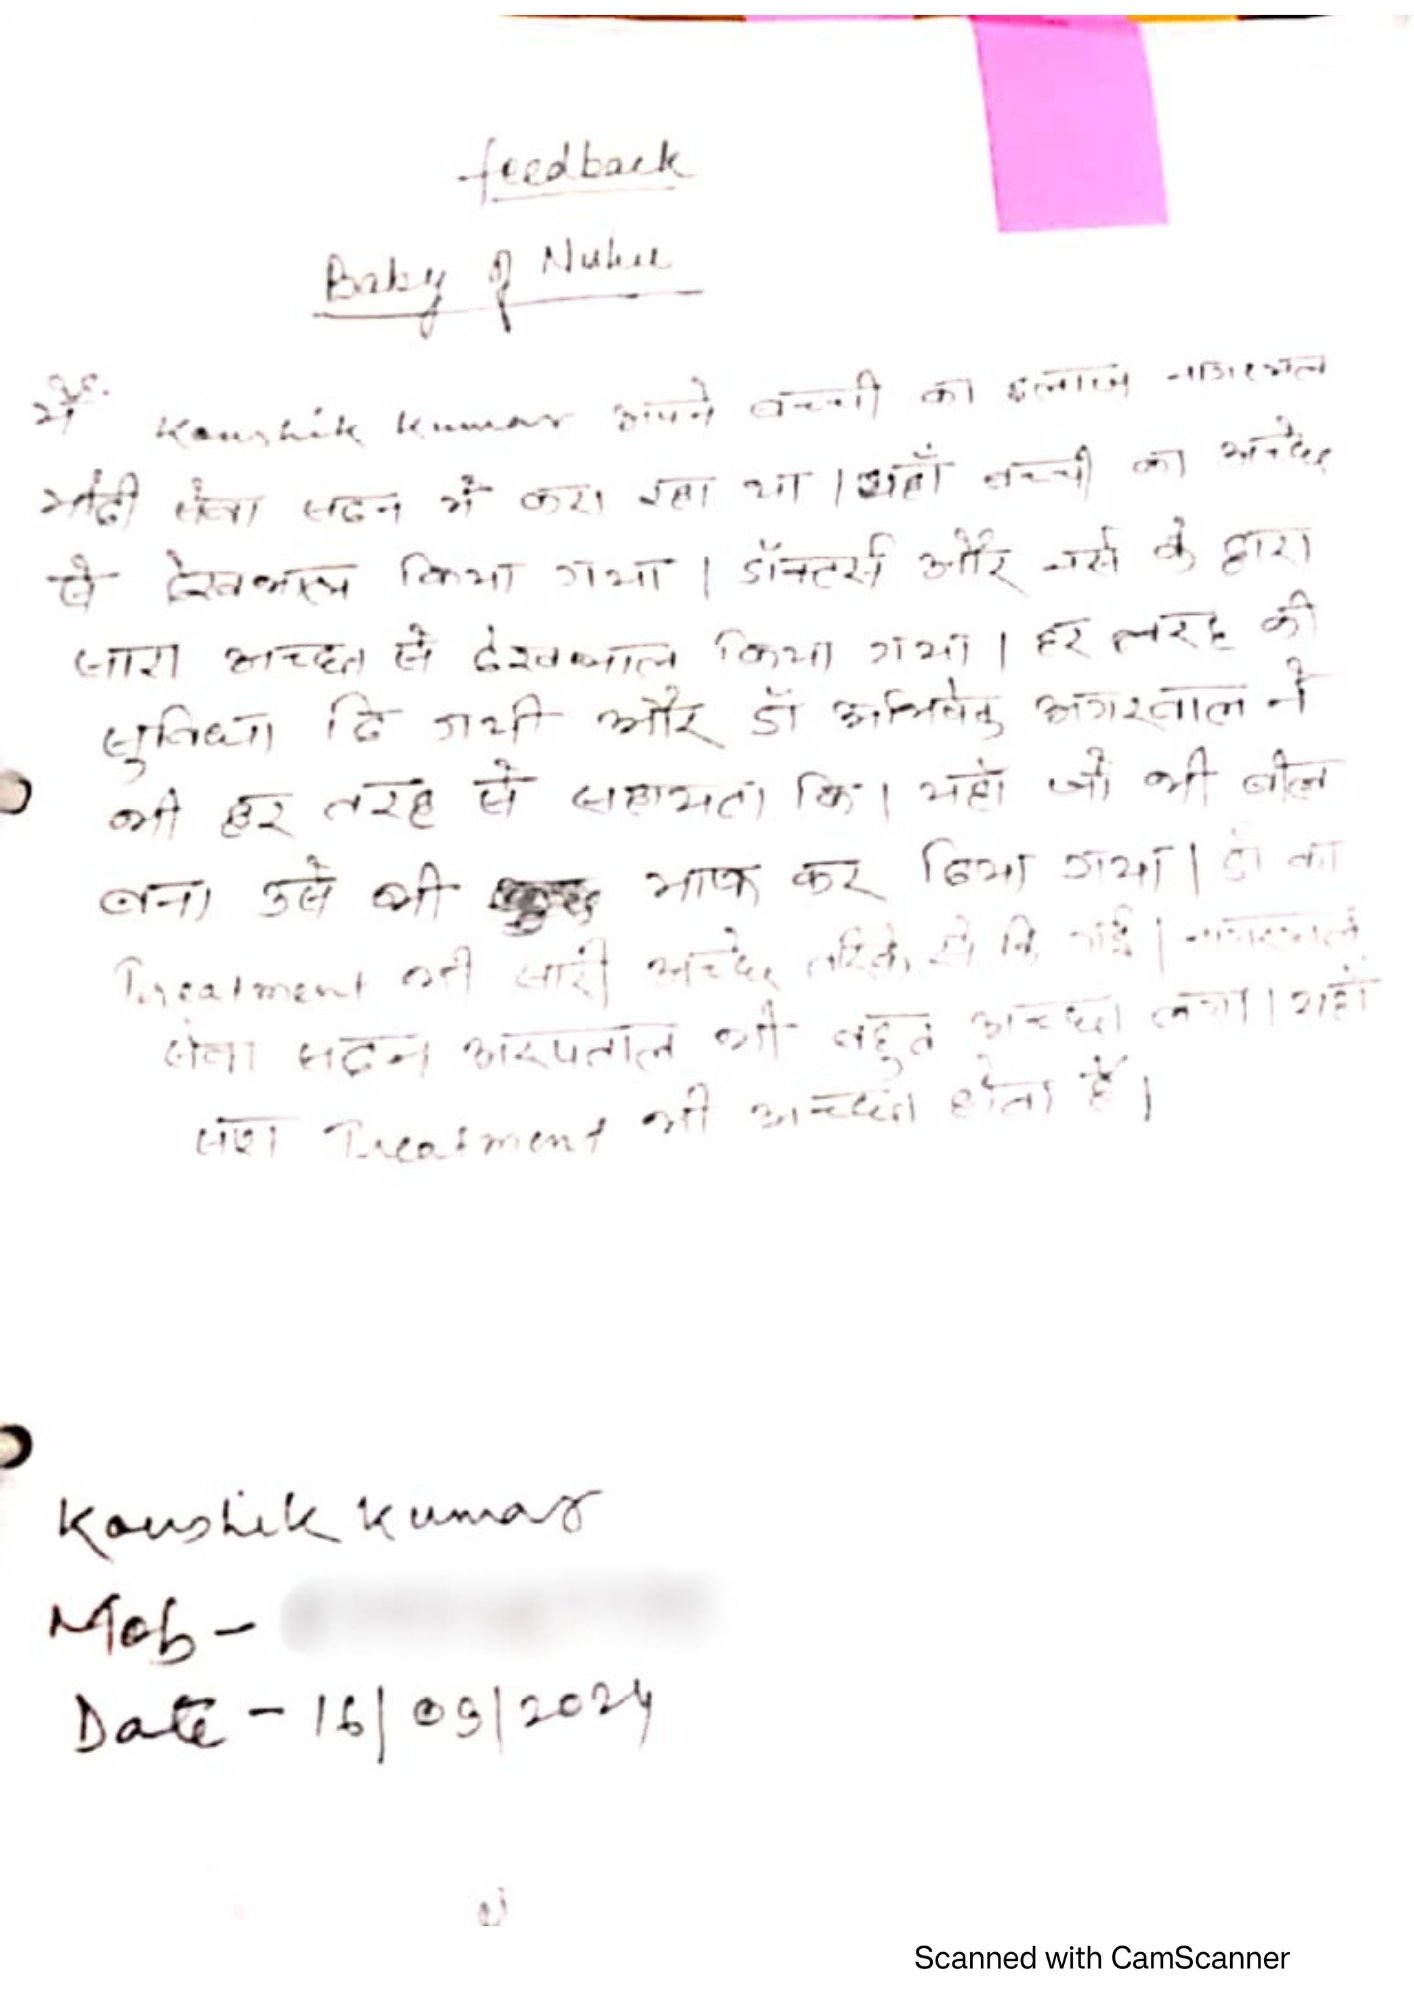 feedback
Baby of
मैं Kaushik Kumar अपने बच्ची का इलाज नागरमल
मोदी सेवा सदन में करा रहा था । यहाँ बच्ची का अच्छे
से देखभाल किया गया । डॉक्टर्स और नर्स के द्वारा
सारा अच्छा से देखभाल किया गया । हर तरह की
सुविधा दि गयी और डॉ अभिषेक अगरवाल ने
भी हर तरह से सहायता कि । यहाँ जो भी बील
बना उसे भी माफ कर दिया गया | डॉ का
Treatment भी सारी अच्छे तरिके से कि गई | नागरमल
सेवा सदन अस्पताल भी बहुत अच्छा लगा । यहाँ
Treatment भी अच्छा होता है ।
Kaushik Kumar
Mob -
Date - 16/09/2024
Scanned with CamScanner